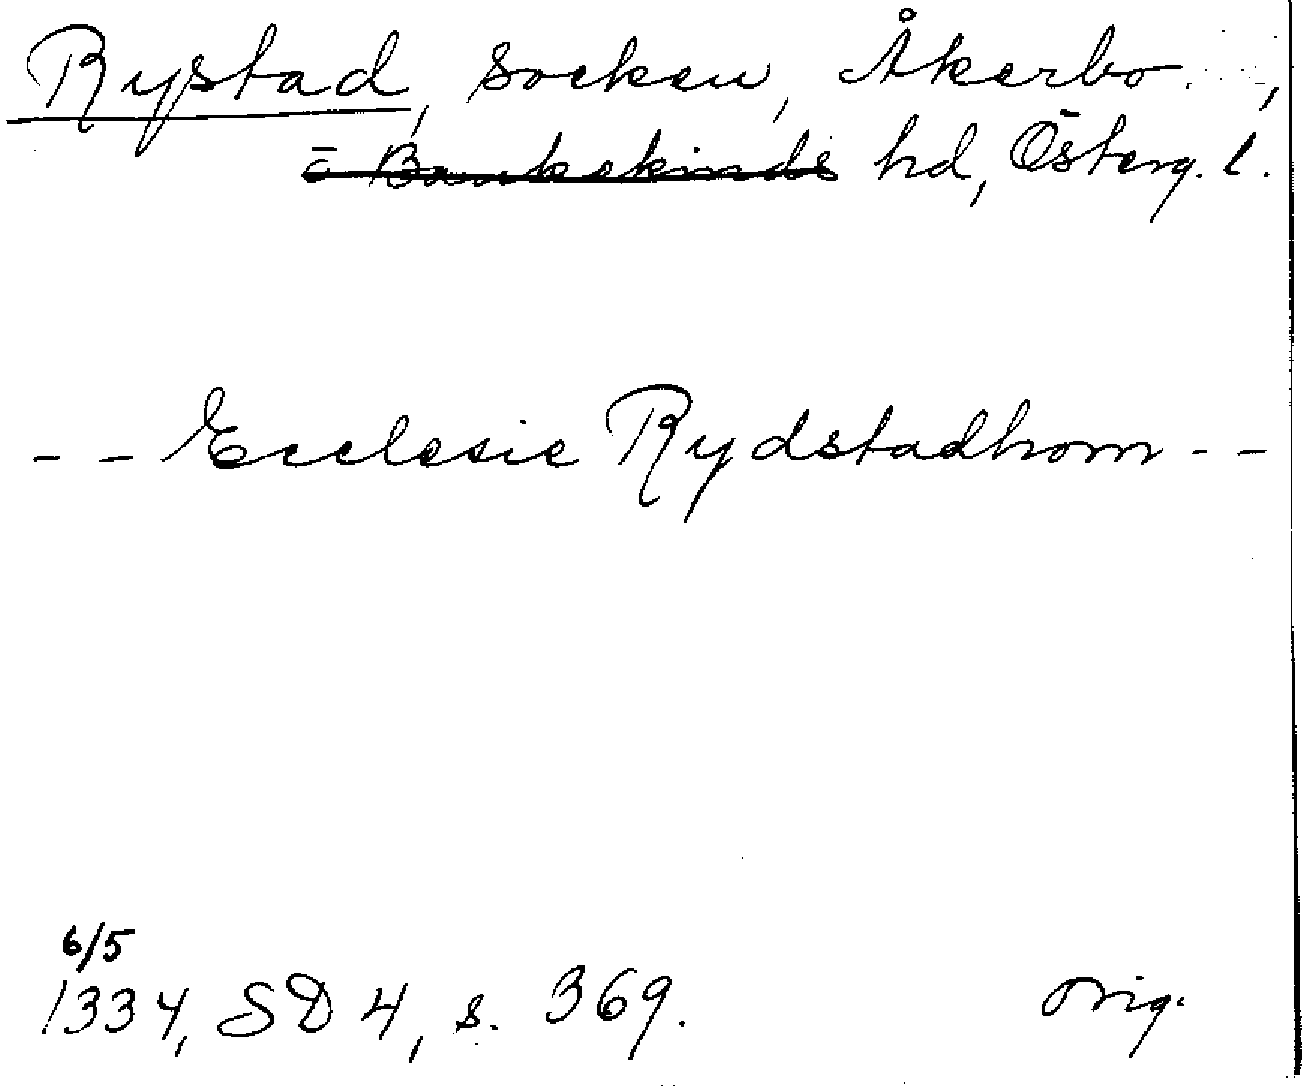 Rystad, socken, Åkerbo,
= Bankekinds hd, Österg. l.
- - Ecclesie Rydstadhom - -
6/5
1334, SD 4, s. 369. Orig.